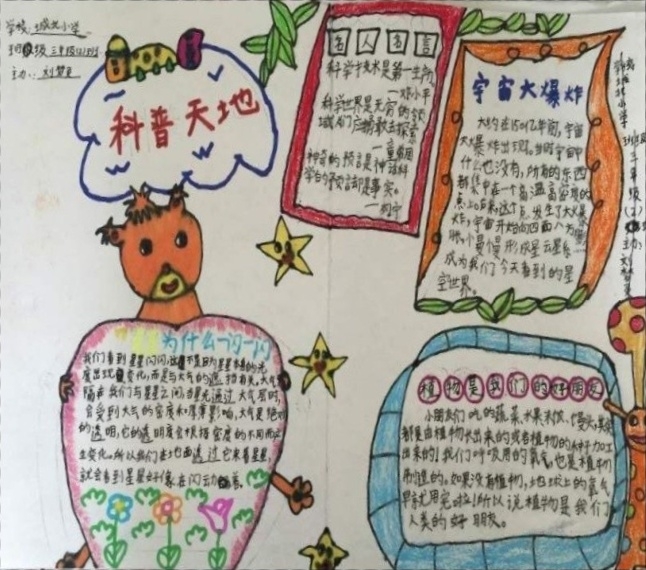 学校：城北小学
班级 三年级(1)班
主办：刘梦
科普天地
名人名言
科学技术是第一生产
—邓小平
科学世界是无穷的领
域，人们应当勇敢去探索
—童第周
神奇的预言是神话科
学的预言却是事实。
—列宁
宇宙大爆炸
大约在150亿年前，宇宙
大爆炸出现。当时宇宙中
什么也没有，所有的东西
都集中在一个高温高密度的
点上。后来这个点发生了大爆
炸，宇宙开始向四面八方膨
胀，慢慢形成星云星系
成为我们今天看到的星
空世界。
星星为什么一闪一闪
我们看到星星闪闪，这不是因为星星本身的光
度出现变化，而是与大气的遮挡有关。大气
隔在我们与星星之间，当星光通过大气层时，
会受到大气的密度和厚薄影响。大气不是绝对
的透明，它的透明度会根据密度的不同而产
生变化。所以我们在地面透过它来看星星，
就会看到星星好像在闪动
植物是我们的好朋友
小朋友们吃的蔬菜、水果、米饭、馒头等
都是由植物长出来的或者植物的种子加工
出来的，我们呼吸用的氧气也是植物
制造的。如果没有植物，地球上的氧气
早就用完啦！所以说植物是我们
人类的好朋友。